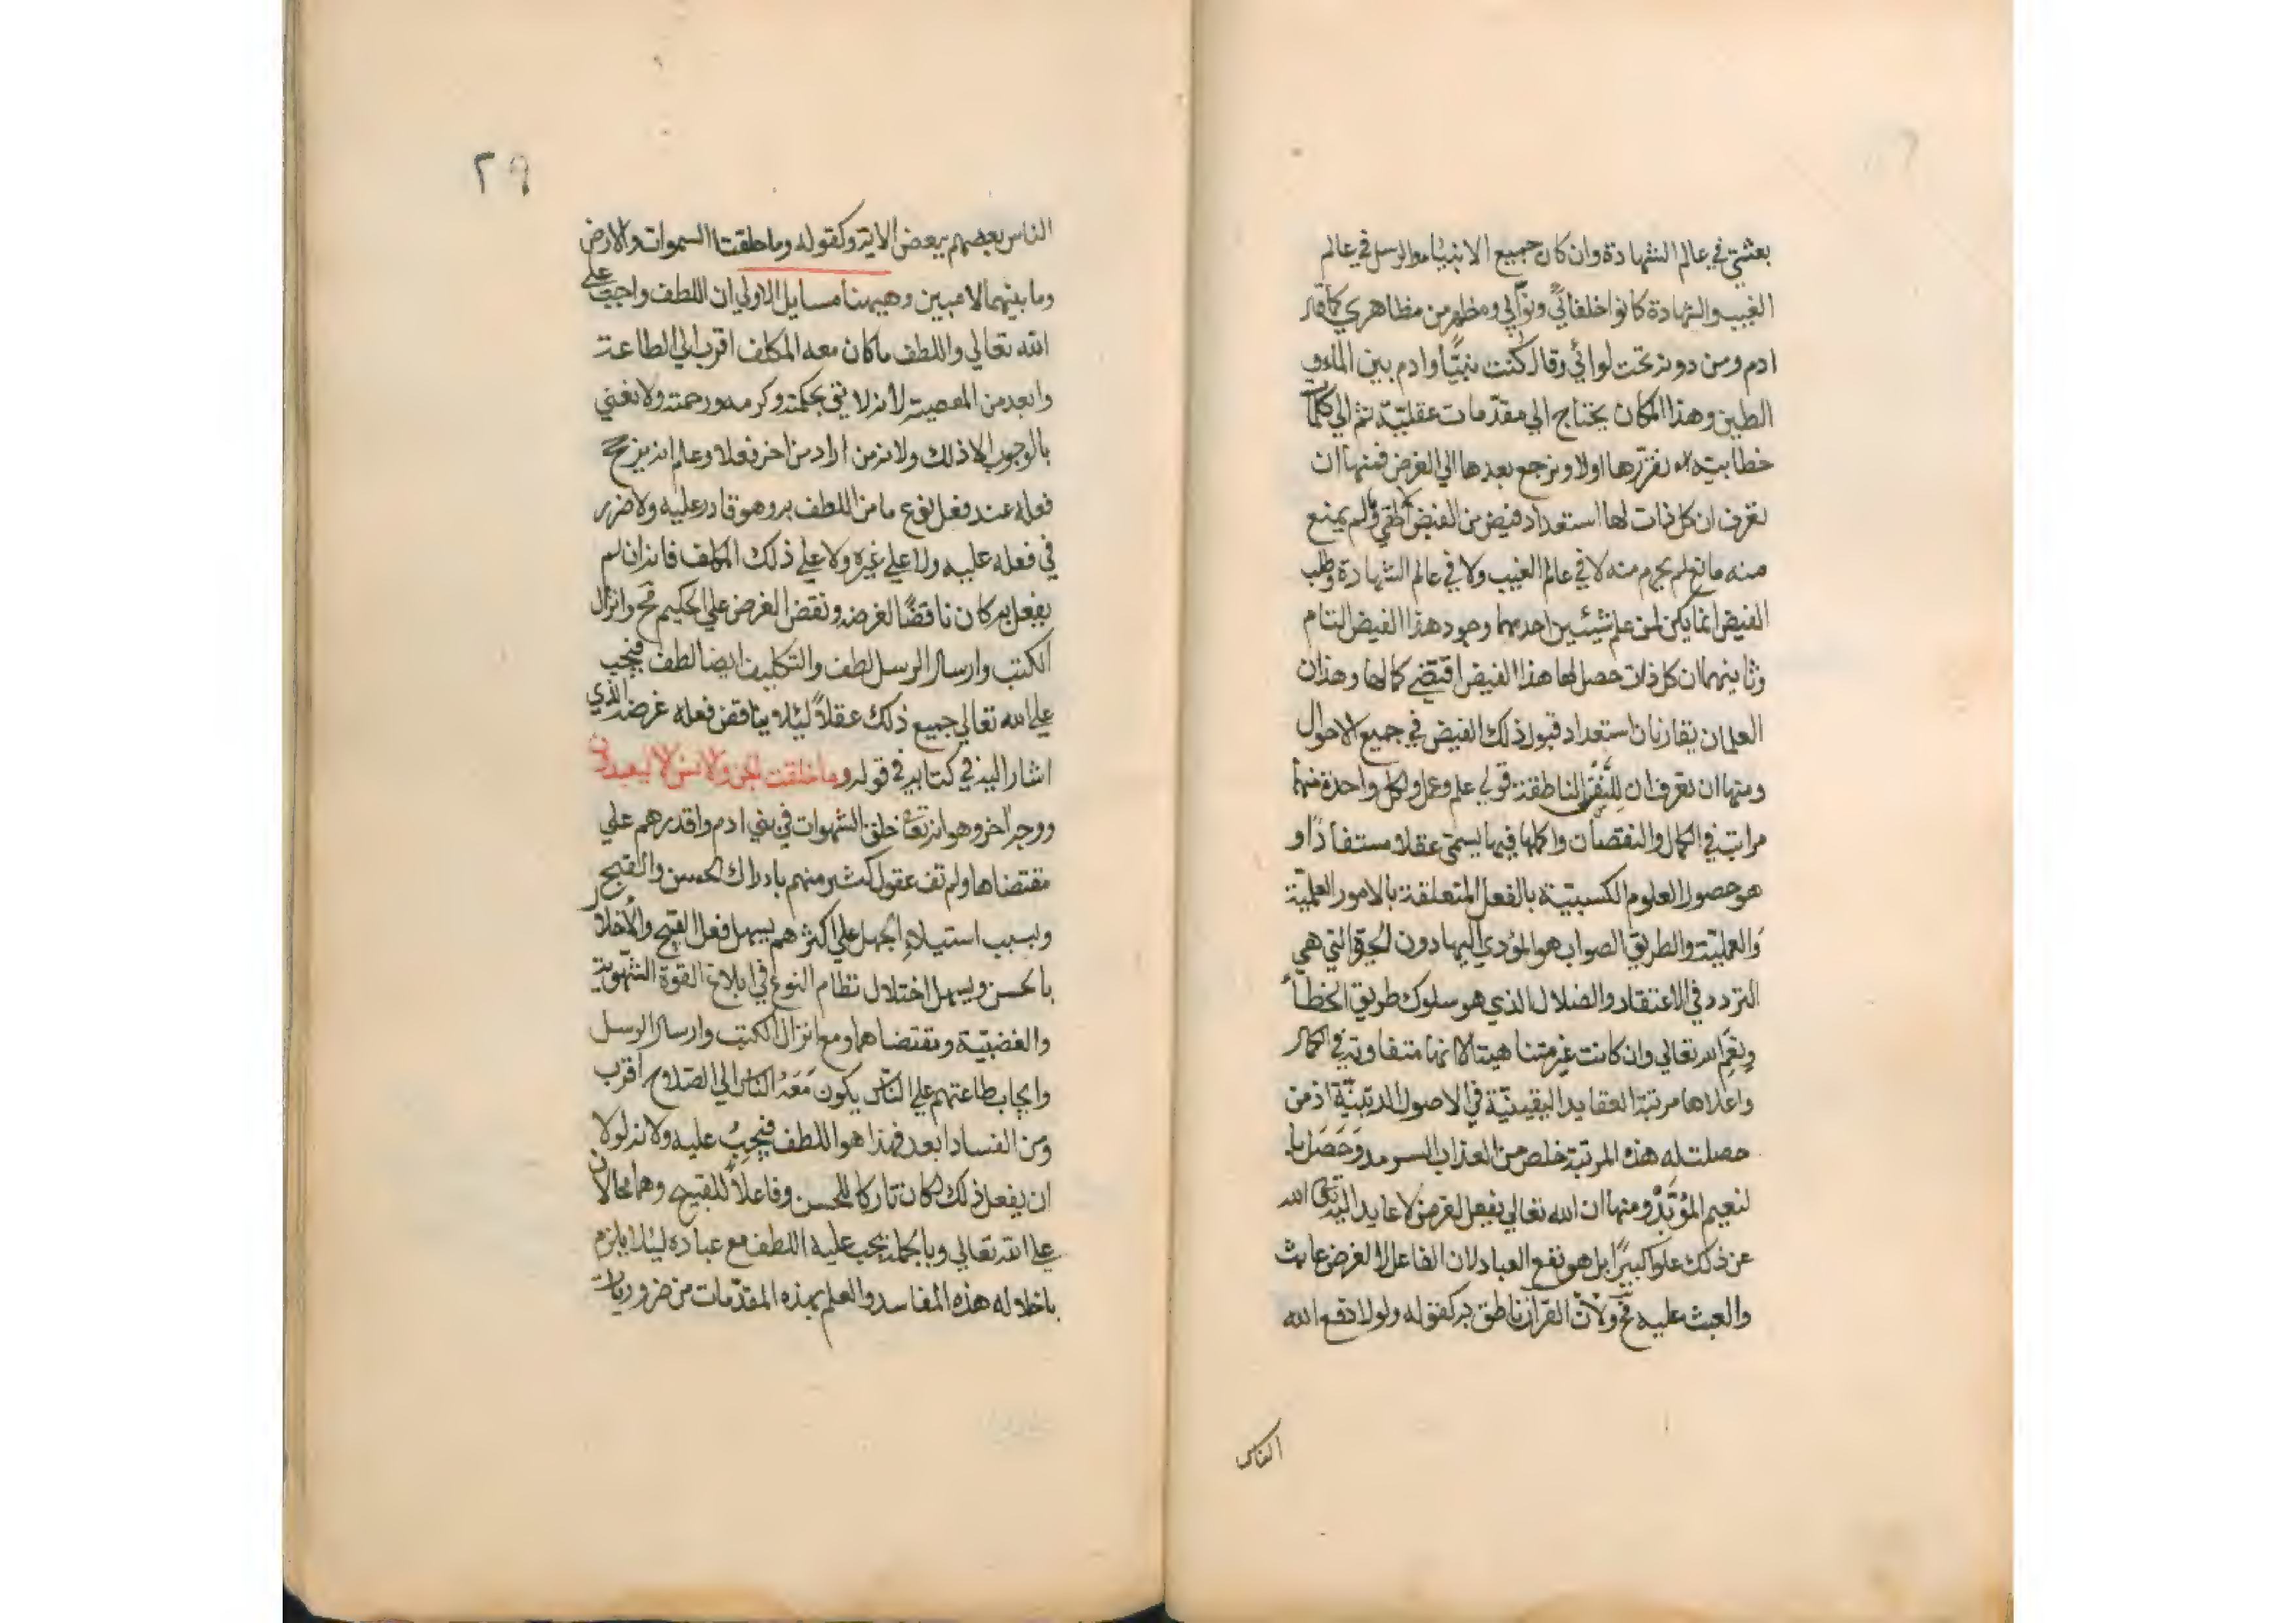 بعثتي في عالم الشهادة وان كان جميع الانبياء والرسل في عالم
الغيب والشهادة كانوا خلفائي ونوّابي ومظهر من مظاهري كما قال
ادم ومن دونه تحت لوائي وقال كنت نبيًّا وادم بين الماء و
الطين وهذا المكان يحتاج الي مقدّمات عقليّة ثم الي كلمات
خطابية نقرّرها اولا ونرجع بعدها الي الغرض فمنها ان
نعرف ان كل ذات لها استعداد فيض من الفيض ولم يمنع
منه مانع لم يحرم منه لا في عالم الغيب ولا في عالم الشهادة وطلب
الفيض انما يكن لمن علم شيئين احدهما وجود هذا الفيض التام
وثانيهما ان كل ذات حصل لها هذا الفيض اقتضي كمالها وهذان
العلمان يقارنان استعداد قبول ذلك الفيض في جميع الاحوال
ومنها ان نعرف ان للنفس الناطقة قوتي علم وعمل ولكل واحدة منهما
مراتب في الكمال والنقصان واكملها فيها يسمّي عقلا مستفادًا و
هو حصول العلوم الكسبيّة بالفعل المتعلقة بالامور العلميّة
والعمليّة والطريق الصواب هو المؤدي اليها دون الحيرة التي هي
التردد في الاعتقاد والضلال الذي هو سلوك طريق الخطأ
ونِعَم الله تعالي وان كانت غير متناهية الا انها متفاوتة في الكمال
واعلاها مرتبة العقايد اليقينيّة في الاصول الدينيّة اذ من
حصلت له هذه المرتبة خلص من العذاب السرمد وحَصَل با
لنعيم المؤبّد ومنها ان الله تعالي يفعل لغرض لا عايد اليه تعالى الله
عن ذلك علوا كبيرًا بل هو نفع العباد لان الفاعل لا لغرض عابث
والعبث عليه مح ولانّ القرآن ناطق به كقوله ولولا دفع الله
الناس
٢٩
الناس بعضهم ببعض الاية وكقوله وما خلقت السموات والارض
وما بينهما لاعبين وهيهنا مسايل الاولي ان اللطف واجب علي
الله تعالي واللطف ما كان معه المكلف اقرب الي الطاعة
وابعد من المعصية لانه لايق بحكمته وكرمه ورحمته ولا نعني
بالوجوب الا ذلك ولانه من اراد من اخر فعلا وعلم انه يرجح
فعله عند فعل نوع ما من اللطف به وهو قادر عليه ولا ضرر
في فعله عليه ولا علي غيره ولا علي ذلك المكلف فانه ان لم
يفعل به كان ناقضًا لغرضه ونقض الغرض علي الحكيم مح وانزال
الكتب وارسال الرسل لطف والتكليف ايضا لطف فيجب
علي الله تعالي جميع ذلك عقلاً لئلا يناقض فعله غرضه الذي
اشار اليه في كتابه في قوله وما خلقت الجن والانس الا ليعبدون
ووجه آخر وهو انه تعا خلق الشهوات في بني ادم واقدرهم علي
مقتضاها ولم تف عقول كثير منهم بادراك الحسن والقبيح
وبسبب استيلاءِ الجهل علي اكثرهم يسهل فعل القبيح والأخلال
بالحسن ويسهل اختلال نظام النوع في ابلاغ القوة الشهوية
والغضبيّة ومقتضاهما ومع انزال الكتب وارسال الرسل
وايجاب طاعتهم علي الناس يكون مَعَهُ الناس الي الصّلاح اقرب
ومن الفساد ابعد فهذا هو اللطف فيجِبُ عليه ولانه لولا
ان يفعل ذلك لكان تاركا للحسن وفاعلاً للقبيح وهما محالان
علي الله تعالي وبالجملة يجب عليه اللطف مع عباده لئلا يلزم
باخلاله هذه المفاسد والعلم بهذه المقدّمات من ضروريات